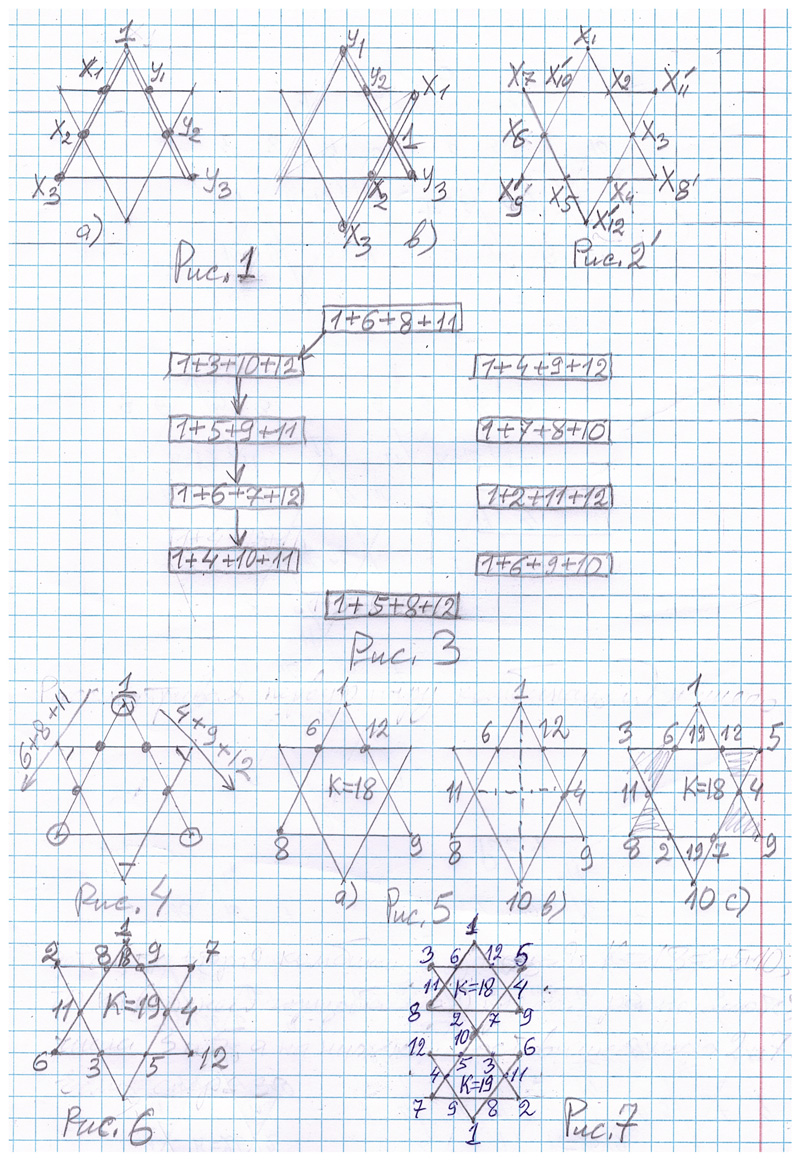 1
X1 y1
X2 y2
X3 y3
а)
y1
y2 X1
1
X2 y3
X3
в)
Рис. 1
X1
X7 X'10 X2 X'11
X6 X3
X'9 X5 X4 X8'
X'12
Рис. 2'
1+6+8+11
1+3+10+12
1+4+9+12
1+5+9+11
1+7+8+10
1+6+7+12
1+2+11+12
1+4+10+11
1+6+9+10
1+5+8+12
Рис. 3
1
6+8+11
4+9+12
Рис. 4
1
6 12
K=18
8 9
а)
1
6 12
11 4
8 9
10 в)
Рис. 5
1
3 6 19 12 5
11 K=18 4
8 2 19 7 9
10 с)
1
2 8 9 7
11 K=19 4
6 3 5 12
Рис. 6
1
3 6 12 5
11 K=18 4
8 2 7 9
10
12 5 3 6
4 K=19 11
7 9 8 2
1
Рис. 7